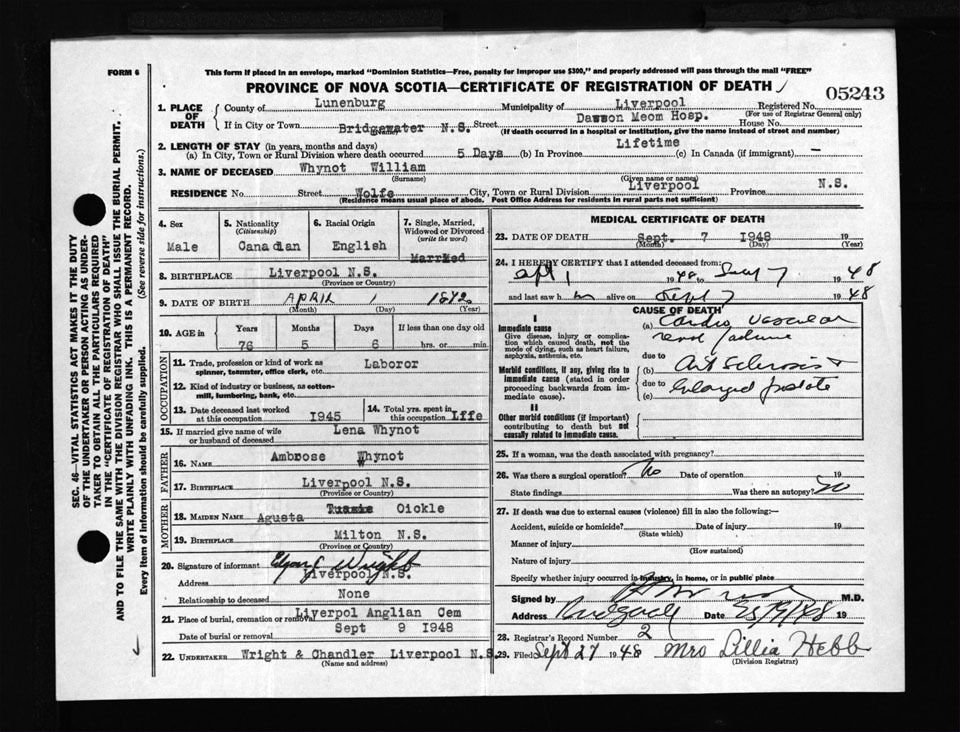 FORM 6
This form if placed in an envelope, marked "Dominion Statistics—Free, penalty for improper use $300," and properly addressed will pass through the mail "FREE"
PROVINCE OF NOVA SCOTIA—CERTIFICATE OF REGISTRATION OF DEATH
05243
1. PLACE OF DEATH County of Lunenburg Municipality of Liverpool Registered No.
(For use of Registrar General only)
If in City or Town Bridgewater N.S. Street Dawson Meom Hosp. House No.
(If death occurred in a hospital or institution, give the name instead of street and number)
2. LENGTH OF STAY (in years, months and days)
(a) In City, Town or Rural Division where death occurred 5 Days (b) In Province Lifetime (c) In Canada (if immigrant) —
3. NAME OF DECEASED Whynot William
(Surname) (Given name or names)
RESIDENCE No. Street Wolfe City, Town or Rural Division Liverpool Province N.S.
(Residence means usual place of abode. Post Office Address for residents in rural parts not sufficient)
4. Sex Male
5. Nationality (Citizenship) Canadian
6. Racial Origin English
7. Single, Married, Widowed or Divorced (write the word) Married
8. BIRTHPLACE Liverpool N.S.
(Province or Country)
9. DATE OF BIRTH APRIL 1 1872
(Month) (Day) (Year)
10. AGE in Years Months Days If less than one day old
76 5 6 hrs. or min.
OCCUPATION
11. Trade, profession or kind of work as spinner, teamster, office clerk, etc. Laboror
12. Kind of industry or business, as cotton-mill, lumbering, bank, etc.
13. Date deceased last worked at this occupation 1945
14. Total yrs. spent in this occupation Lffe
15. If married give name of wife or husband of deceased Lena Whynot
FATHER
16. NAME Ambrose Whynot
17. BIRTHPLACE Liverpool N.S.
(Province or Country)
MOTHER
18. MAIDEN NAME Agusta Oickle
19. BIRTHPLACE Milton N.S.
(Province or Country)
20. Signature of informant Wright
Address Liverpool N.S.
Relationship to deceased None
21. Place of burial, cremation or removal Liverpol Anglian Cem
Date of burial or removal Sept 9 1948
22. UNDERTAKER Wright & Chandler Liverpool N.S.
(Name and address)
MEDICAL CERTIFICATE OF DEATH
23. DATE OF DEATH Sept. 7 1948 19
(Month) (Day) (Year)
24. I HEREBY CERTIFY that I attended deceased from:
Apt 1 1948 to 7 1948
and last saw h im alive on Sept 7 1948
CAUSE OF DEATH
I
Immediate cause
Give disease, injury or complication which caused death, not the mode of dying, such as heart failure, asphyxia, asthenia, etc.
(a) Cardio vascular
renal failure
due to
Morbid conditions, if any, giving rise to immediate cause (stated in order proceeding backwards from immediate cause).
(b) Art Sclerosis
due to
(c) Enlarged prostate
II
Other morbid conditions (if important) contributing to death but not causally related to immediate cause.
25. If a woman, was the death associated with pregnancy?
26. Was there a surgical operation? No Date of operation 19
State findings Was there an autopsy? No
27. If death was due to external causes (violence) fill in also the following:—
Accident, suicide or homicide? Date of injury 19
(State which)
Manner of injury
(How sustained)
Nature of injury
Specify whether injury occurred in industry, in home, or in public place
Signed by M.D.
Address Date 25/9/48 19
28. Registrar's Record Number 2
29. Filed Sept 27 1948 Mrs Lillia Hebb
(Division Registrar)
SEC. 46—VITAL STATISTICS ACT MAKES IT THE DUTY
OF THE UNDERTAKER OR PERSON ACTING AS UNDERTAKER
TO OBTAIN ALL THE PARTICULARS REQUIRED
IN THE "CERTIFICATE OF REGISTRATION OF DEATH"
AND TO FILE THE SAME WITH THE DIVISION REGISTRAR WHO SHALL ISSUE THE BURIAL PERMIT.
WRITE PLAINLY WITH UNFADING INK. THIS IS A PERMANENT RECORD.
Every item of information should be carefully supplied. (See reverse side for instructions.)